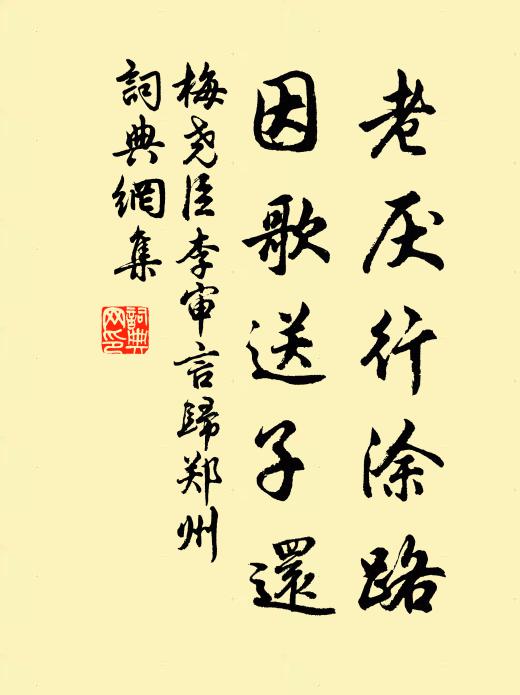 老厌行涂路
因歌送子還
梅尧臣李审言歸郑州
詞典網集
詞典网印